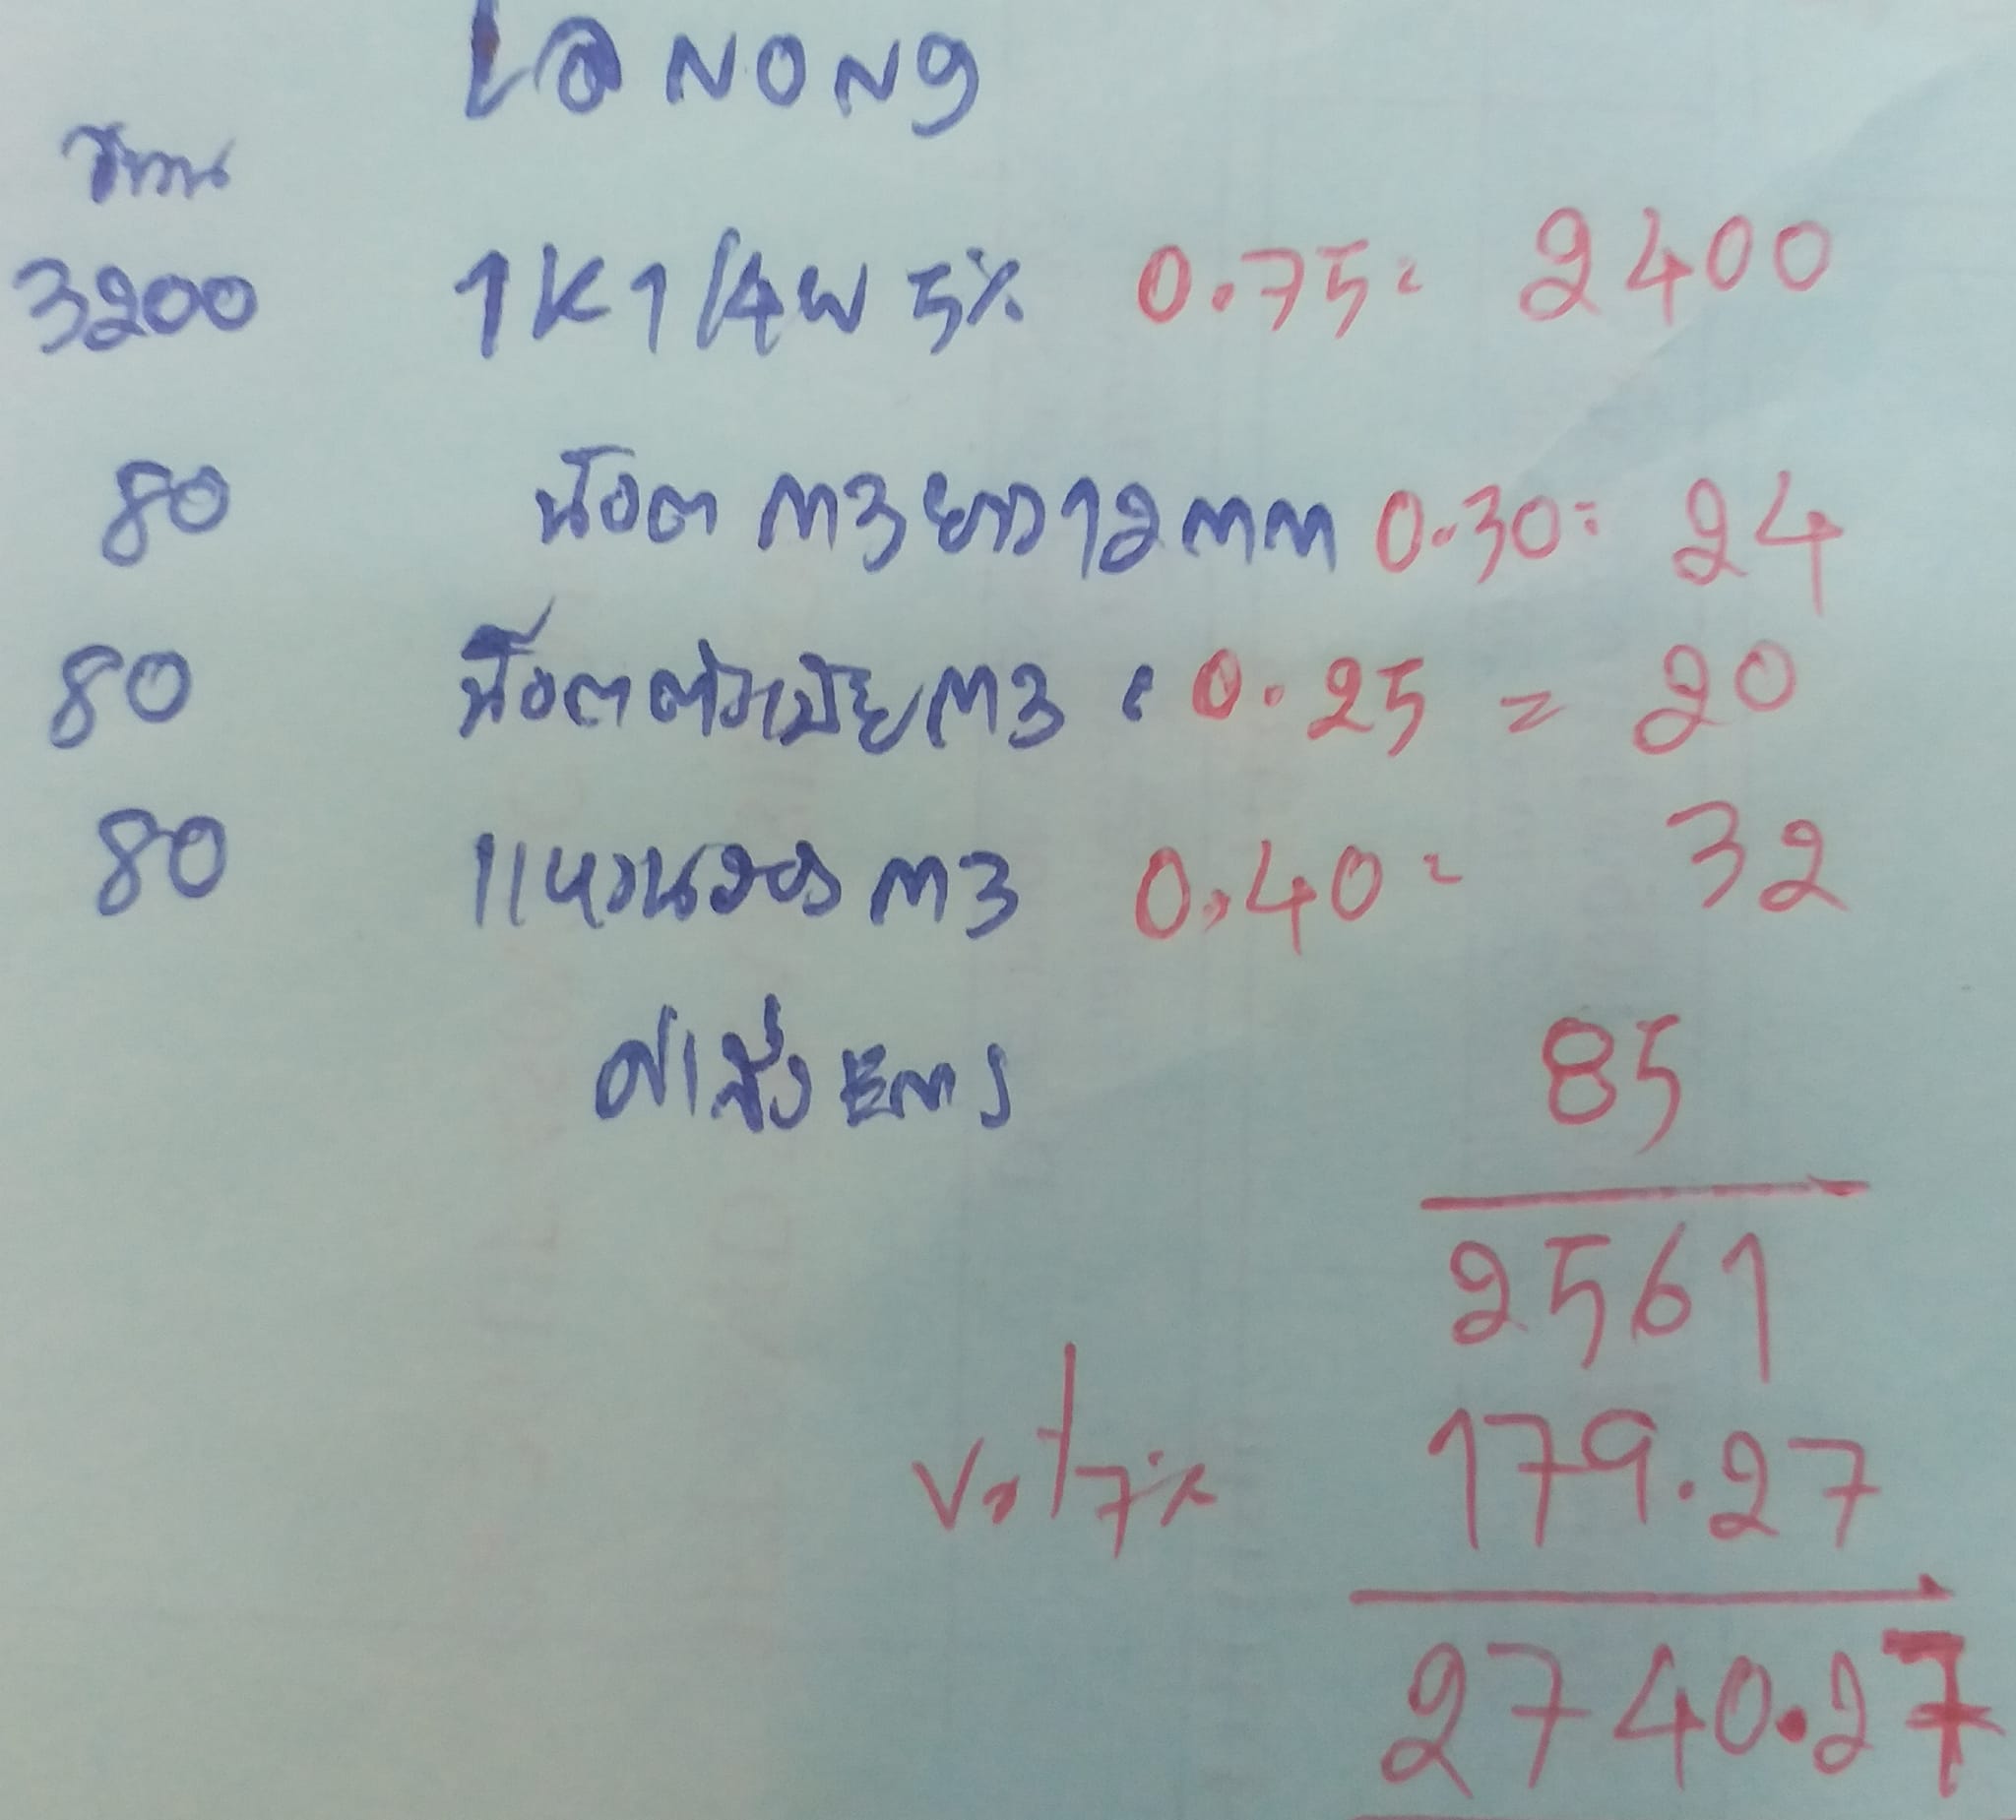 จำนวน
3200 1K 1/4W 5% 0.75= 2400
80 น็อต M3 ยาว 12mm 0.30= 24
80 น็อตตัวเมีย M3 0.25 = 20
80 แหวนรอง M3 0.40= 32
ค่าส่ง 85
2561
Vat 7% 179.27
2740.27